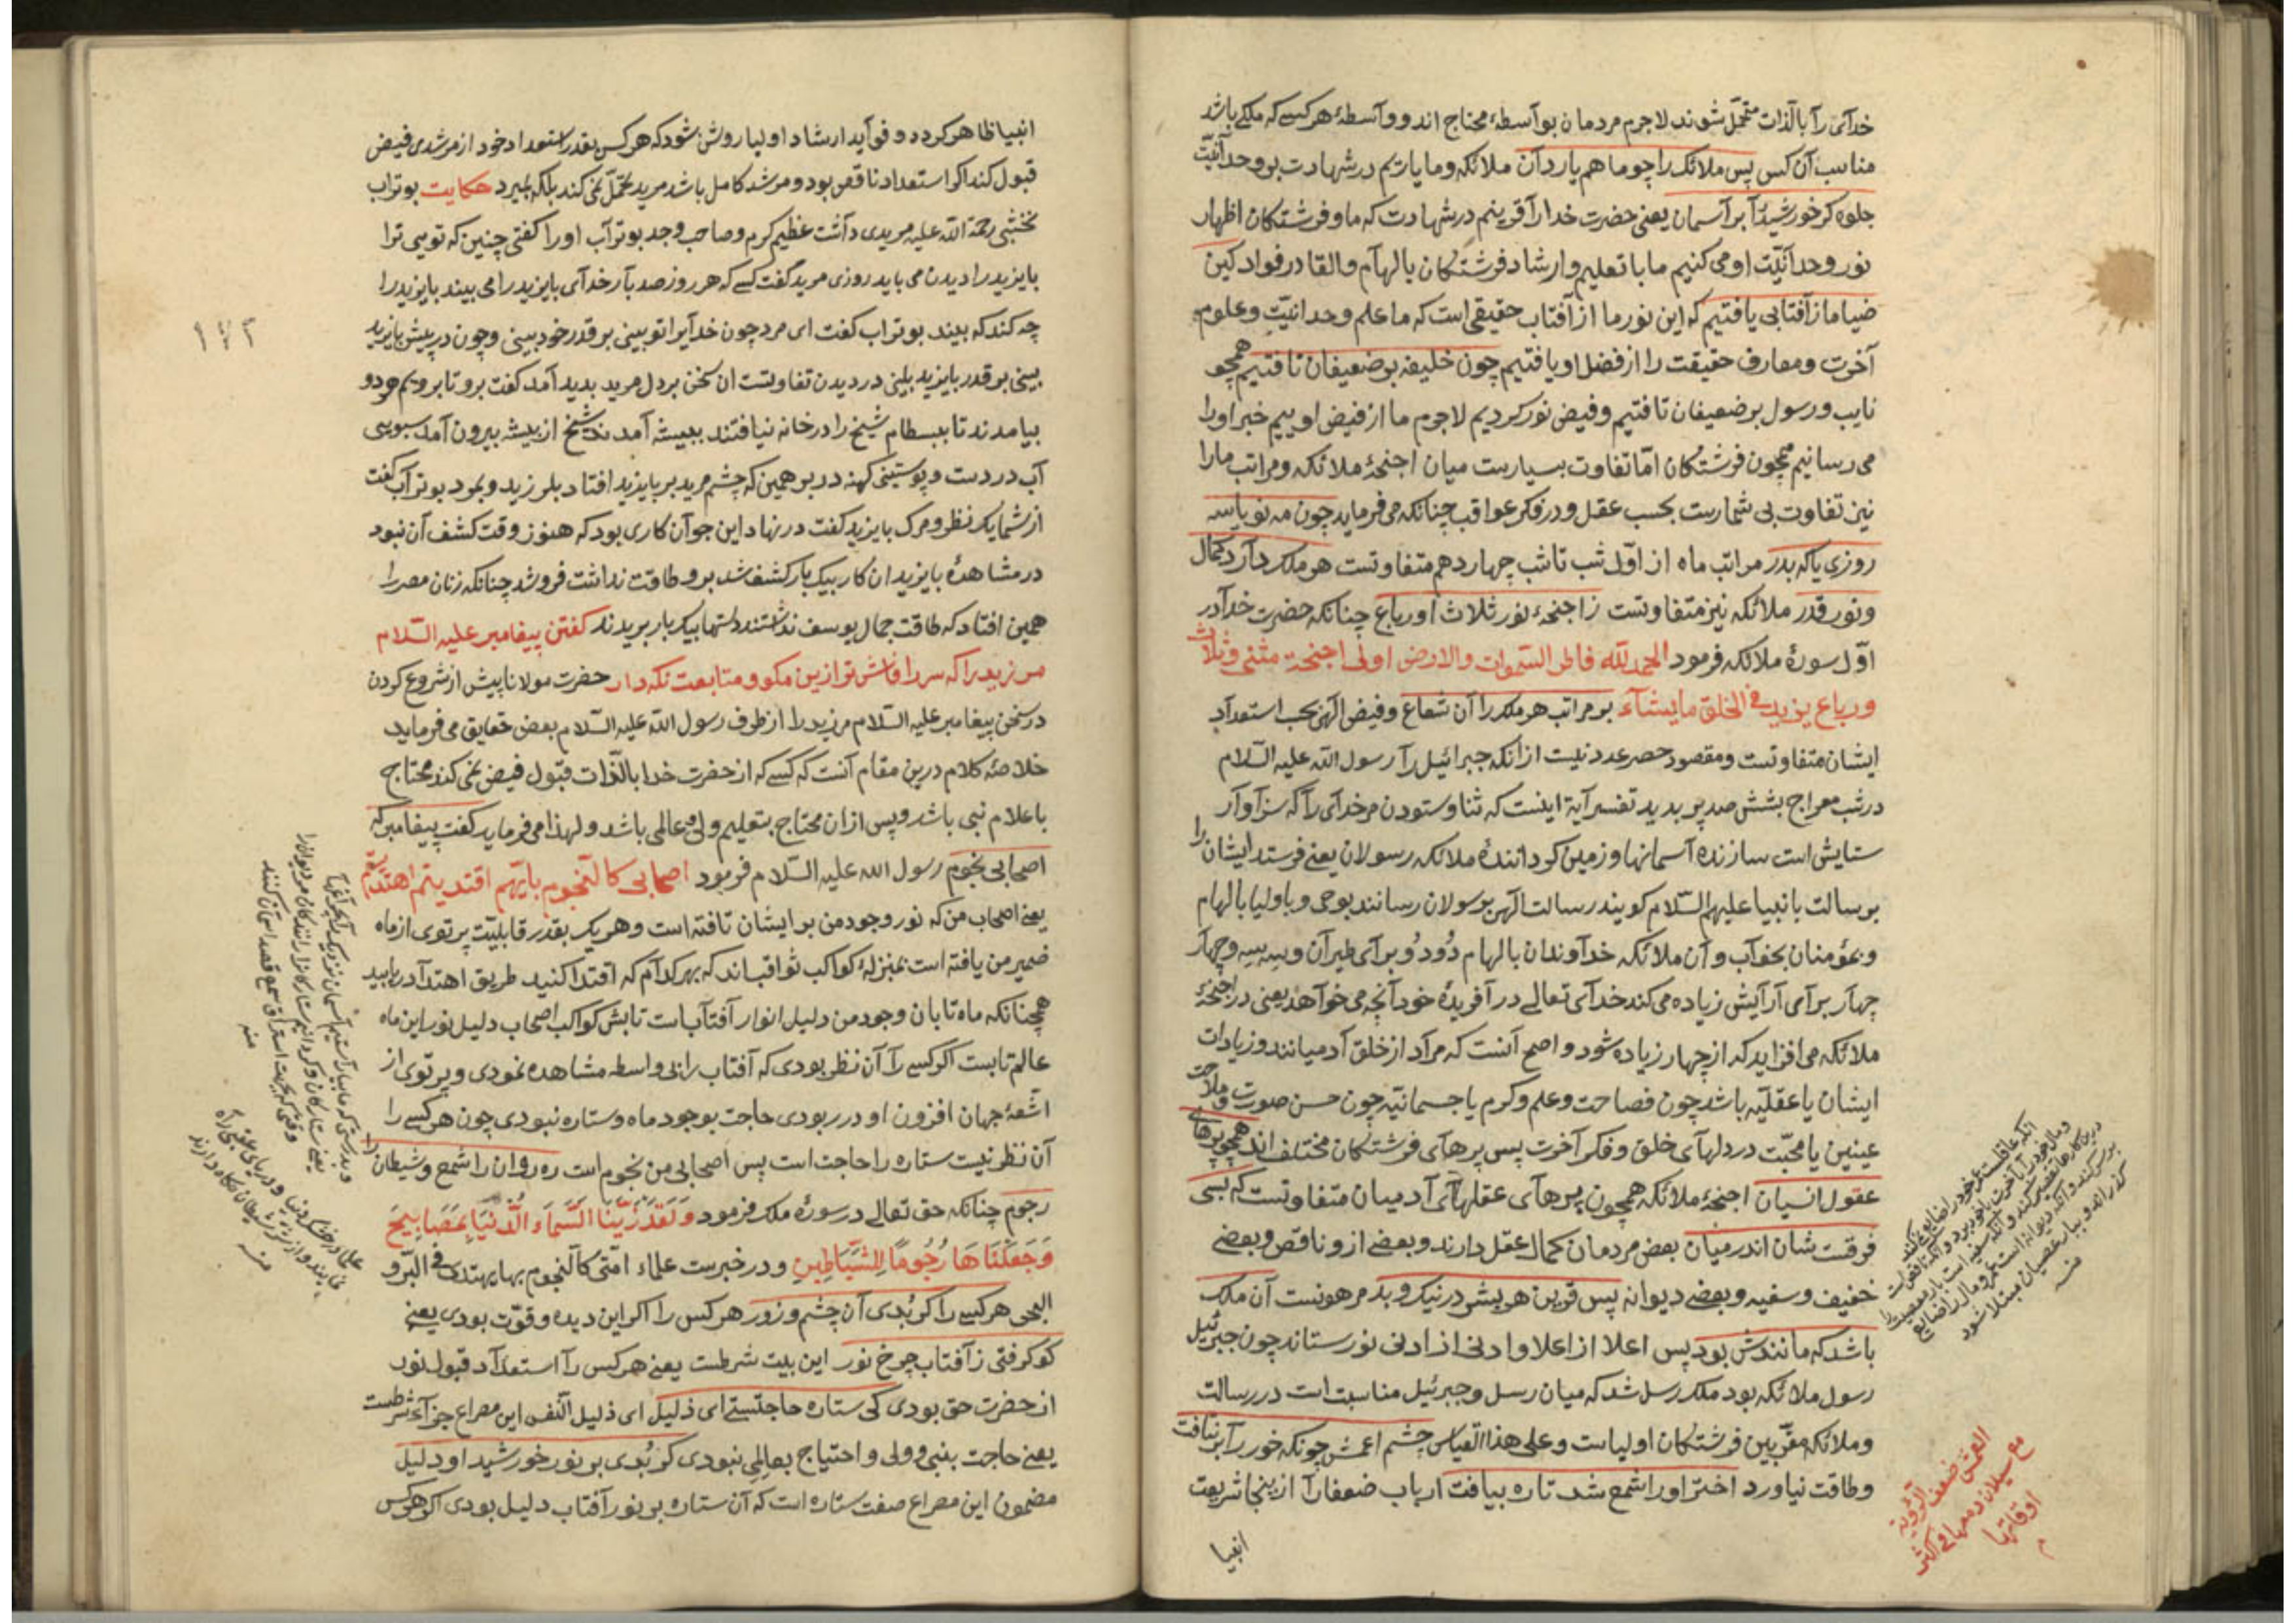 خدای را بالذات متحمل شوند لاجرم مردمان بواسطه محتاج اند و واسطهٔ هر کسے که ملکے باشد
مناسب آن کس پس ملائک را چو ما هم یار دان ملائکه و ما یاریم در شهادت بوحدانیت
جلوه کر خورشید را بر آسمان یعنی حضرت خدا را قرینم در شهادت که ما و فرشتکان اظهار
نور وحدانیت او می کنیم ما با تعلیم و ارشاد فرشتکان بالهام و القا در فواد کین
ضیا ما ز آفتابی یافتیم که این نور ما از آفتاب حقیقی است که ما علم وحدانیت و علوم
آخرت و معارف حقیقت را از فضل او یافتیم چون خلیفه بر ضعیفان تافتیم همچو
نایب و رسول بر ضعیفان تافتیم و فیض نور کردیم لاجرم ما از فیض اوییم خبر او را
می رسانیم همچون فرشتکان اما تفاوت بسیارست میان اجنحهٔ ملائکه و مراتب ما را
نیز تفاوت بی شمارست بحسب عقل و در فکر عواقب چنانکه می فرماید چون مه نو یا سه
روزی یا که بدر مراتب ماه از اول شب تا شب چهاردهم متفاوتست هر ملک دارد کمال
و نور قدر ملائکه نیز متفاوتست ز اجنحهٔ نور ثلاث او رباع چنانکه حضرت خدا در
اول سورهٔ ملائکه فرمود الحمد لله فاطر السموات والارض اولی اجنحة مثنی وثلاث
ورباع یزید فی الخلق ما یشاء بر مراتب هر ملک را آن شعاع و فیض الهی بحسب استعداد
ایشان متفاوتست و مقصود حصر عدد نیست از انکه جبرائیل را رسول الله علیه السلام
در شب معراج بششصد پر بدید تفسیر آیة اینست که ثنا و ستودن مر خدای را که سزاوار
ستایش است سازنده آسمانها و زمین کرداننده ملائکه رسولان یعنے فرستد ایشان را
برسالت بانبیا علیهم السلام کویند رسالت الهی برسولان رسانند بوحی و باولیا بالهام
و بمؤمنان بخواب و آن ملائکه خداوندان بالهام دُو دُو برای طیران و سه سه و چهار
چهار برای آرایش زیاده می کند خدای تعالے در آفریدهٔ خود آنچه می خواهد یعنی در اجنحهٔ
ملائکه می افزاید که از چهار زیاده شود و اصح آنست که مراد از خلق آدمیانند و زیادات
ایشان یا عقلیه باشد چون فصاحت و علم و کرم یا جسمانیه چون حسن صورت و ملاحت
عینین یا محبت در دلهای خلق و فکر آخرت پس پرهای فرشتکان مختلف اند همچو پرهای
عقول انسیان اجنحهٔ ملائکه همچون پرهای عقلهای آدمیان متفاوتست که بسی
فرقست شان اندر میان بعض مردمان کمال عقل دارند و بعضے از و ناقص و بعضے
خفیف و سفیه و بعضے دیوانه پس قرین هر بشر در نیک و بد مرهونست آن ملک
باشد که مانندش بود پس اعلا از اعلا و ادنی از ادنی نور ستاند چون جبرئیل
رسول ملائکه بود ملک رسل شد که میان رسل و جبرئیل مناسبت است در رسالت
و ملائکه مقربین فرشتکان اولیاست و علی هذا القیاس چشم اعمش چونکه خور را بر نتافت
و طاقت نیاورد اختر او را شمع شد تا ره بیافت ارباب ضعفا را از ینجا شریعت
انبیا
العمش ضعف الرؤیة
مع سیلان دمعها فی اکثر
اوقاتها
انبیا ظاهر کرده و فواید ارشاد اولیا روشن شود که هر کس بقدر استعداد خود از مرشدی فیض
قبول کند اکر استعداد ناقص بود و مرشد کامل باشد مرید تحمل نمی کند بلکه بمیرد حکایت بوتراب
نخشبی رحمة الله علیه مریدی داشت عظیم کرم و صاحب وجد بوتراب او را کفتی چنین که تویی ترا
بایزید را دیدن می باید روزی مرید کفت کسے که هر روز صد بار خدای بایزید را می بیند بایزید را
چه کند که بیند بوتراب کفت ای مرد چون خدایرا تو بینی بر قدر خود بینی و چون در پیش بایزید
بینی بر قدر بایزید بینی در دیدن تفاوتست ان سخن بر دل مرید بدید آمد کفت برو تا برویم هر دو
بیامدند تا ببسطام شیخ را در خانه نیافتند ببیشه آمدند شیخ از بیشه بیرون آمد سبویی
آب در دست و پوستینی کهنه در بر همین که چشم مرید بر بایزید افتاد بلرزید و بمرد بوتراب کفت
از شما یک نظر و مرک بایزید کفت در نهاد این جوان کاری بود که هنوز وقت کشف آن نبود
در مشاهدهٔ بایزید ان کار بیک بار کشف شد برو طاقت نداشت فرو شد چنانکه زنان مصر را
همین افتاد که طاقت جمال یوسف نداشتند دستها بیکبار بریدند کفتن پیغامبر علیه السلام
مر زید را که سر را فاش تر ازین مکو و متابعت نکه دار حضرت مولانا پیش از شروع کردن
در سخن پیغامبر علیه السلام مر زید را از طرف رسول الله علیه السلام بعض حقایق می فرماید
خلاصهٔ کلام درین مقام آنست که کسے که از حضرت خدا بالذات قبول فیض نمی کند محتاج
باعلام نبی باشد و پس از ان محتاج بتعلیم ولی و عالمی باشد و لهذا می فرماید کفت پیغامبر که
اصحابی نجوم رسول الله علیه السلام فرمود اصحابی کالنجوم بایهم اقتدیتم اهتدیتم
یعنے اصحاب من که نور وجود من بر ایشان تافته است و هر یک بقدر قابلیت پرتوی از ماه
ضمیر من یافته است بمنزلهٔ کواکب ثواقب اند که بهر کدام که اقتدا کنید طریق اهتدا دریابید
همچنانکه ماه تابان وجود من دلیل انوار آفتاب است تابش کواکب اصحاب دلیل نور این ماه
عالم تابست اکر کسے را آن نظر بودی که آفتاب را بی واسطه مشاهده نمودی و پرتوی از
اشعهٔ جهان افزون او در ربودی حاجت بوجود ماه و ستاره نبودی چون هر کسے را
آن نظر نیست ستاره را حاجت است پس اصحابی من نجوم است ره روان را شمع و شیطان را
رجوم چنانکه حق تعالے در سورهٔ ملک فرمود وَلَقَدْ زَيَّنَّا السَّمَاءَ الدُّنْيَا بِمَصَابِيحَ
وَجَعَلْنَاهَا رُجُومًا لِلشَّيَاطِينِ و در خبرست علماء امتی کالنجوم بها یهتدی فی البر و
البحر هر کسے را کر بُدی آن چشم و زور هر کس را اکر این دیده و قوت بودی یعنے
کو کرفتی ز آفتاب چرخ نور این بیت شرطست یعنے هر کس را استعداد قبول نور
از حضرت حق بودی کی ستاره حاجتستے ای ذلیل ای ذلیل النفس این مصراع جزاء شرطست
یعنے حاجت بنبی و ولی و احتیاج بعالِمی نبودی کر بُدی بر نور خورشید او دلیل
مضمون این مصراع صفت ستاره است که آن ستاره بر نور آفتاب دلیل بودی اکر هر کس